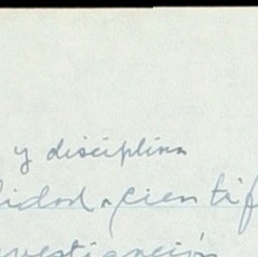 y disciplina
idad científ
nvestigación